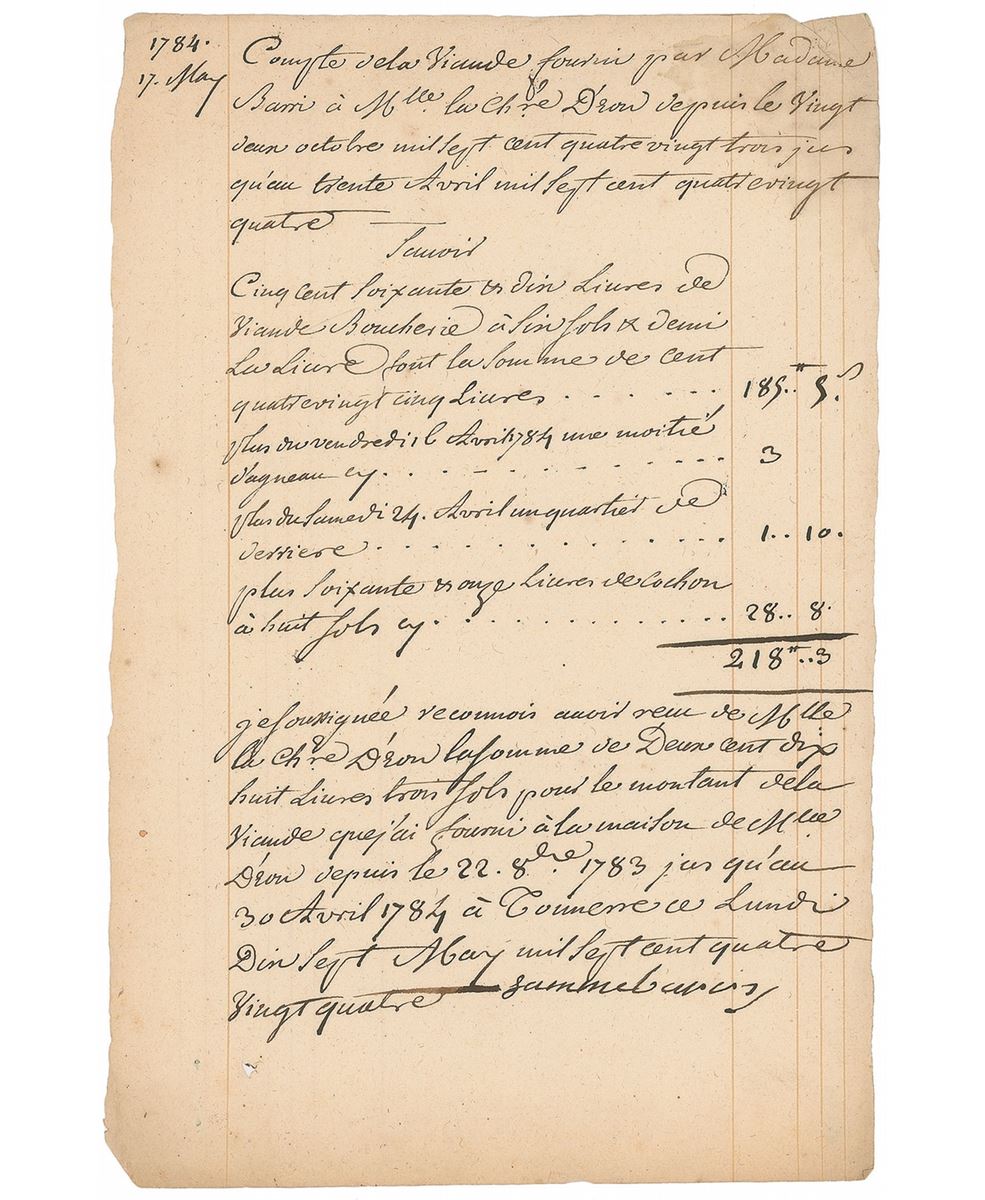 1784.
17. May
Compte dela Viande fourni par Madame
Barri à Mlle la Chre D'Eon depuis le Vingt
deux octobre mil sept cent quatre vingt trois jus
qu'au trente Avril mil sept cent quatre vingt
quatre
Sauoir
Cinq cent soixante & dix Liures de
Viande Boucherie à six sols & demi
La Liure font la Somme de cent
quatre vingt cinq Liures . . . . . . 185.. 5.s
plus du vendredi 16 Avril 1784 une moitié
d'agneau cy. . . . . . . . . . 3
plus du Samedi 24. Avril un quartier de
derriere . . . . . . . . . . . . 1.. 10.
plus soixante & onze Liures de Cochon
à huit sols cy. . . . . . . . . . 28.. 8.
218tt..3
je soussignée reconnois auoir reçu de Mlle
la Chre D'Eon la somme de Deux cent dix
huit Liures trois sols pour le montant dela
Viande que j'ai fourni à la maison de Mlle
D'Eon depuis le 22. 8bre. 1783 jus qu'au
30 Avril 1784 à Tonnerre ce Lundi
Dix Sept May mil sept cent quatre
Vingt quatre